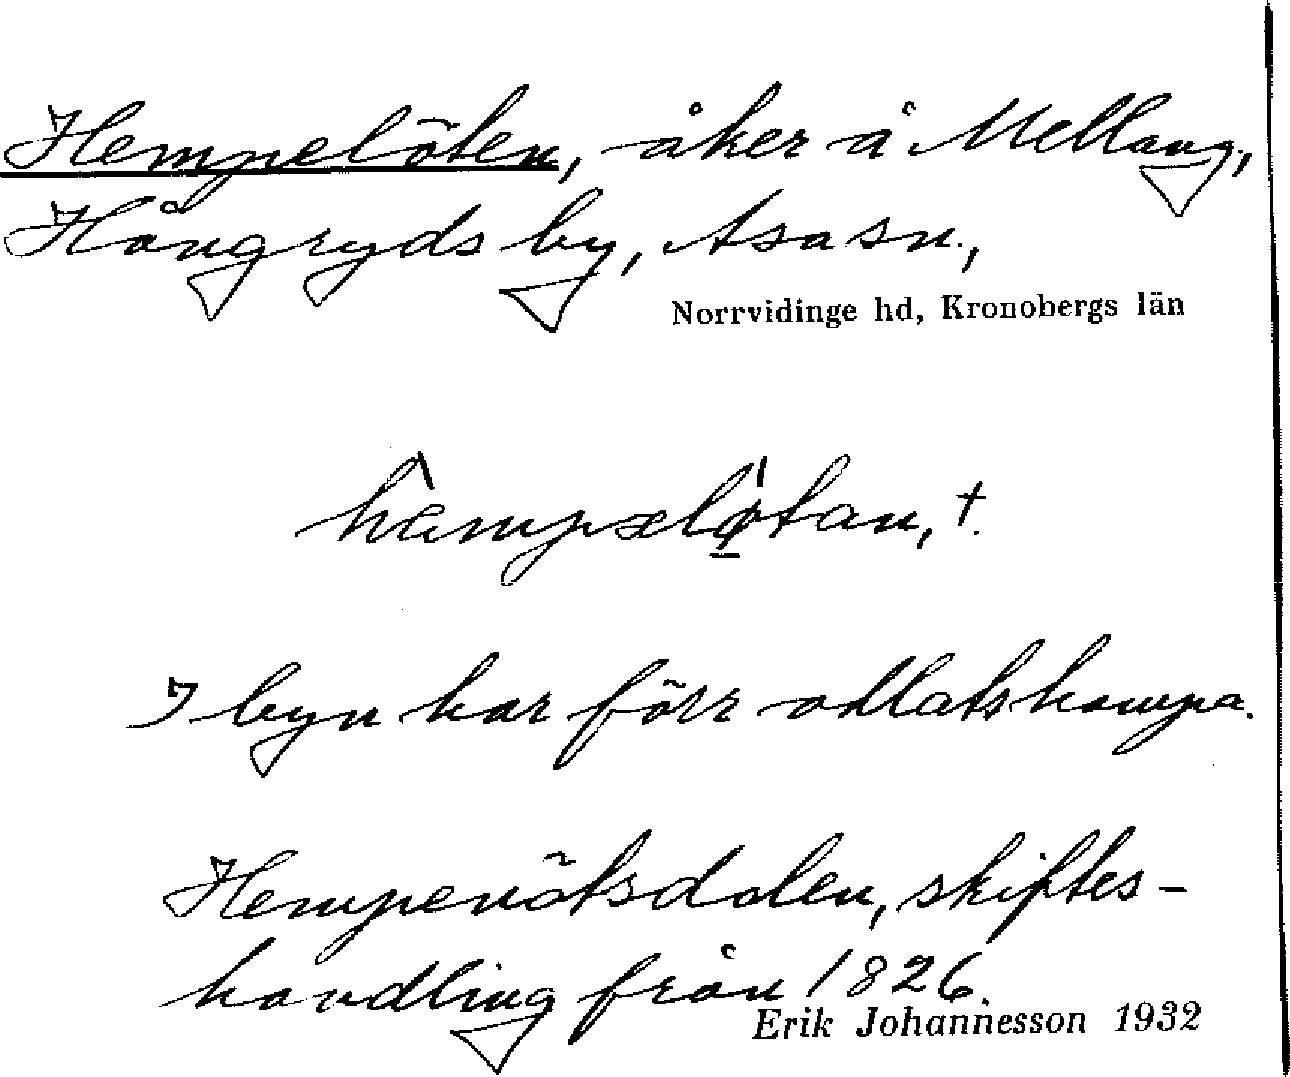 Hempelöten, åker å Mellang.,
Hångryds by, Asa sn.,
Norrvidinge hd, Kronobergs län
hæmpælø̀tan, †.
I byn har förr odlats hampa.
Hempenötsdalen, skiftes-
handling från 1826.
Erik Johannesson 1932